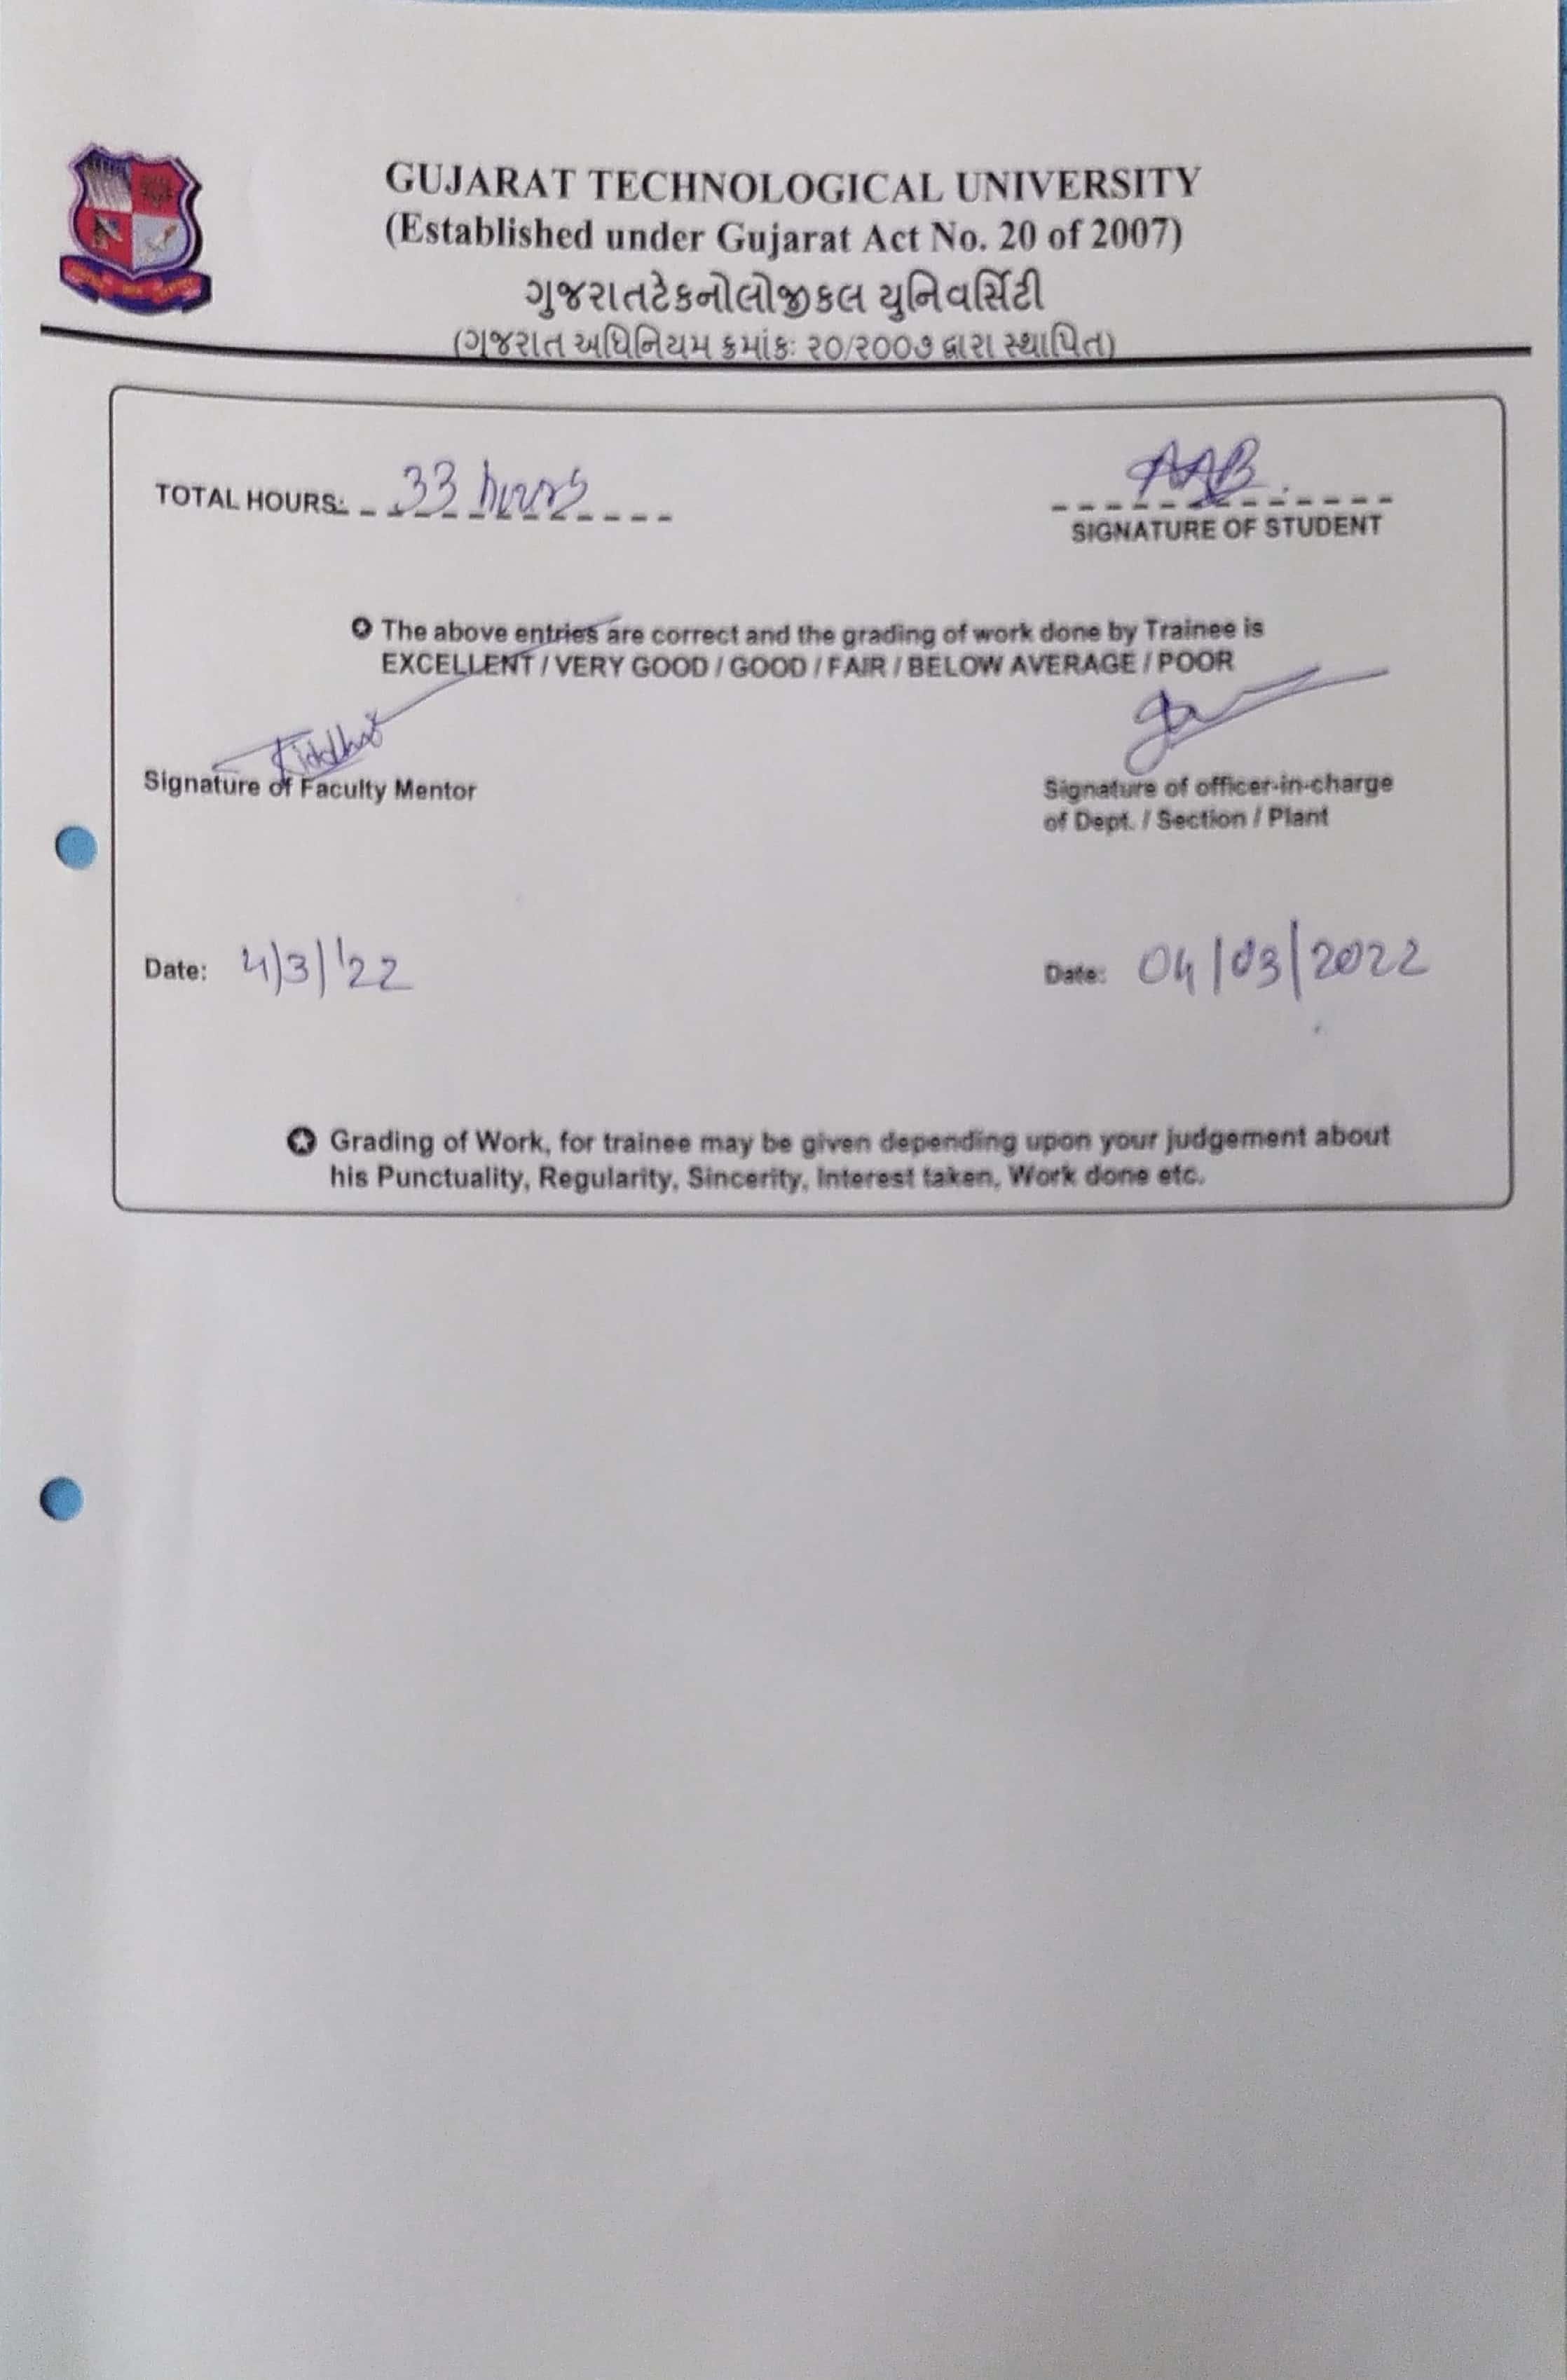 GUJARAT TECHNOLOGICAL UNIVERSITY
(Established under Gujarat Act No. 20 of 2007)
ગુજરાતટેકનોલોજીકલ યુનિવર્સિટી
(ગુજરાત અધિનિયમ ક્રમાંકઃ ૨૦/૨૦૦૭ દ્વારા સ્થાપિત)
TOTAL HOURS: 33 hours
AAB
SIGNATURE OF STUDENT
The above entries are correct and the grading of work done by Trainee is
EXCELLENT / VERY GOOD / GOOD / FAIR / BELOW AVERAGE / POOR
Signature of Faculty Mentor
Signature of officer-in-charge
of Dept. / Section / Plant
Date: 4/3/'22
Date: 04/03/2022
Grading of Work, for trainee may be given depending upon your judgement about
his Punctuality, Regularity, Sincerity, Interest taken, Work done etc.